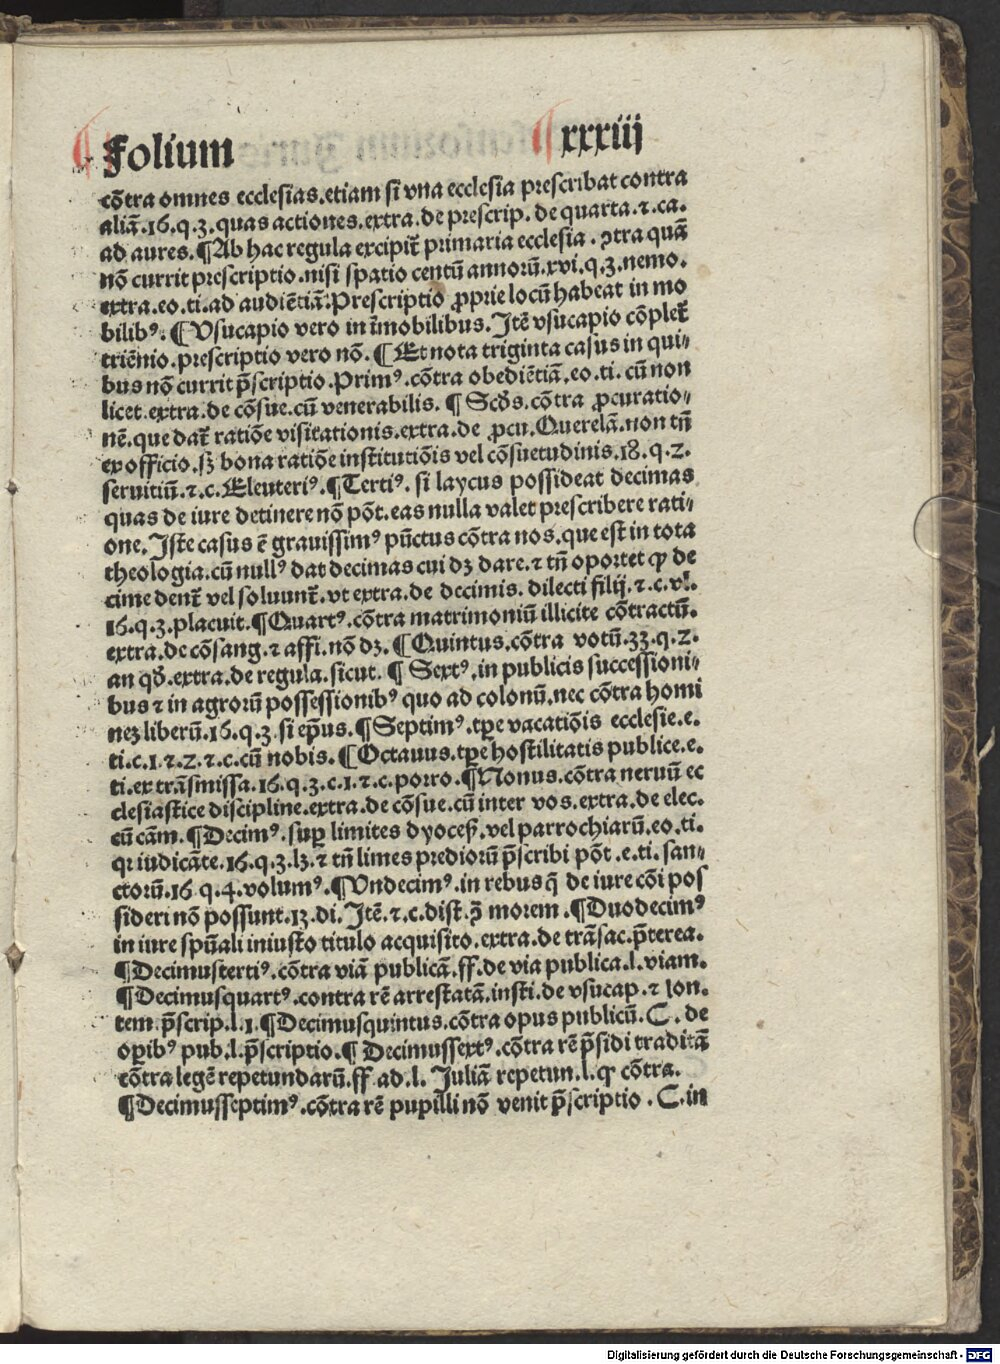 ¶ Folium ¶ xxxiij
cõtra omnes ecclesias.etiam si vna ecclesia prescribat contra
aliã.16.q.3.quas actiones.extra.de prescrip. de quarta.⁊.ca.
ad aures.¶Ab hac regula excipit᷑ primaria ecclesia . ꝯtra quã
nõ currit prescriptio.nisi spatio centũ annorũ.xvi.q.3.nemo.
extra.eo.ti.ad audiẽtiã.Prescriptio ꝓprie locũ habeat in mo
bilibꝰ. ¶Vsucapio vero in im̃obilibus.Itẽ vsucapio cõplet᷑
triẽnio.prescriptio vero nõ.¶Et nota triginta casus in qui⸗
bus nõ currit p̃scriptio.Primꝰ.cõtra obediẽtiã.eo.ti. cũ non
licet.extra.de cõsue.cũ venerabilis. ¶ Scd̃s.cõtra ꝓcuratio⸗
nẽ.que dat᷑ ratiõe visitationis.extra.de ꝓcu.Querelã.non tñ
ex officio.sꝫ bona ratiõe institutiõis vel cõsuetudinis.18.q.2.
seruitiũ.⁊.c.Eleuteriꝰ.¶Tertiꝰ. si laycus possideat decimas
quas de iure detinere nõ põt.eas nulla valet prescribere rati⸗
one.Iste casus ẽ grauissimꝰ pũctus cõtra nos.que est in tota
theologia.cũ nullꝰ dat decimas cui dꝫ dare.⁊ tñ oportet ꝙ de
cime dent᷑ vel soluunt᷑.vt extra.de decimis. dilecti filij.⁊.c.vl.
16.q.3.placuit.¶Quartꝰ.cõtra matrimoniũ illicite cõtractũ.
extra.de cõsang.⁊ affi.nõ dꝫ.¶Quintus.cõtra votũ.33.q.2.
an qď.extra.de regula.sicut. ¶ Sextꝰ.in publicis successioni⸗
bus ⁊ in agrorũ possessionibꝰ quo ad colonũ.nec cõtra homi
neꝫ liberũ.16.q.3.si ep̃us.¶Septimꝰ.tꝑe vacatiõis ecclesie.e.
ti.c.1.⁊.2.⁊.c.cũ nobis.¶Octauus.tꝑe hostilitatis publice.e.
ti.ex trãsmissa.16.q.3.c.1.⁊.c.porro.¶Nonus.cõtra neruũ ec
clesiastice discipline.extra.de cõsue.cũ inter vos.extra.de elec.
cũ cãm.¶Decimꝰ.suꝑ limites dyoceß.vel parrochiarũ.eo.ti.
qr iudicãte.16.q.3.lꝫ.⁊ tñ limes prediorũ p̃scribi põt.e.ti.san⸗
ctorũ.16 q.4.volumꝰ.¶Vndecimꝰ.in rebus q̃ de iure cõi pos
sideri nõ possunt.13.di.Itẽ.⁊.c.dist.p̃ morem.¶Duodecimꝰ
in iure spũali iniusto titulo acquisito.extra.de trãsac.p̃terea.
¶Decimustertiꝰ.cõtra viã publicã.ff.de via publica.l.viam.
¶Decimusquartꝰ.contra rẽ arrestatã.insti.de vsucap.⁊ lon.
tem.p̃scrip.l.1.¶Decimusquintus.cõtra opus publicũ.C.de
oꝑibꝰ pub.l.p̃scriptio.¶ Decimussextꝰ.cõtra rẽ p̃sidi traditã
cõtra legẽ repetundarũ.ff ad.l. Juliã repetun.l.ꝙ cõtra.
¶Decimusseptimꝰ.cõtra rẽ pupilli nõ venit p̃scriptio . C.in
Digitalisierung gefördert durch die Deutsche Forschungsgemeinschaft - DFG